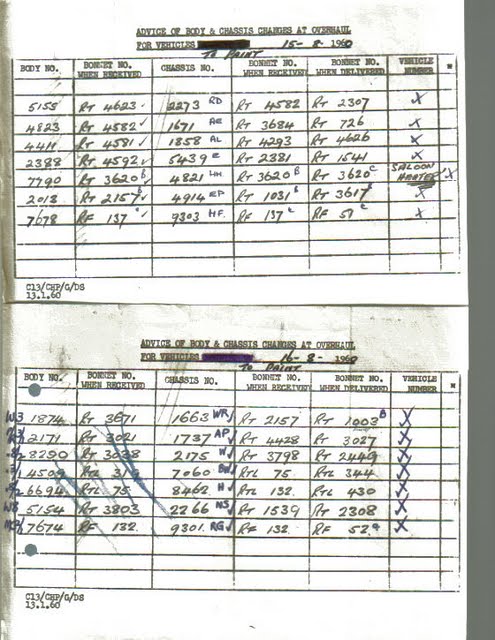 ADVICE OF BODY & CHASSIS CHANGES AT OVERHAUL
FOR VEHICLES TO PAINT 15-8-1960
BODY NO. BONNET NO. WHEN RECEIVED CHASSIS NO. BONNET NO. WHEN RECEIVED BONNET NO. WHEN DELIVERED VEHICLE NUMBER *
5155 RT 4623 ✓ 2273 RD RT 4582 RT 2307 X
4823 RT 4582 ✓ 1671 AE RT 3684 RT 726 X
4411 RT 4581 ✓ 1858 AL RT 4293 RT 4626 X
2388 RT 4592 ✓ 5439 E RT 2381 RT 1541 X
7790 RT 3620 B ✓ 4821 LH RT 3620 B RT 3620 C SALOON HEATER X
2013 RT 2157 ✓ 4914 RT 1031 RT 3617 X
7678 RF 137 ✓ 9303 HF RF 137 RF 51 C X
C13/CHP/G/DS
13.1.60
ADVICE OF BODY & CHASSIS CHANGES AT OVERHAUL
FOR VEHICLES TO PAINT 16-8-1960
BODY NO. BONNET NO. WHEN RECEIVED CHASSIS NO. BONNET NO. WHEN RECEIVED BONNET NO. WHEN DELIVERED VEHICLE NUMBER *
W3 1874 RT 3671 1663 WR ✓ RT 2157 RT 1003 B X
2171 RT 3021 1737 AP ✓ RT 4428 RT 3027 X
8290 RT 3038 2175 W ✓ RT 3798 RT 2449 X
4509 RTL 7060 BW ✓ RTL 75 RTL 344 X
6694 RTL 75 8462 H ✓ RTL 132 RTL 430 X
5154 RT 3803 2266 NS ✓ RT 1539 RT 2308 X
7674 RF 132 9301 RG ✓ RF 132 RF 52 X
C13/CHP/G/DS
13.1.60